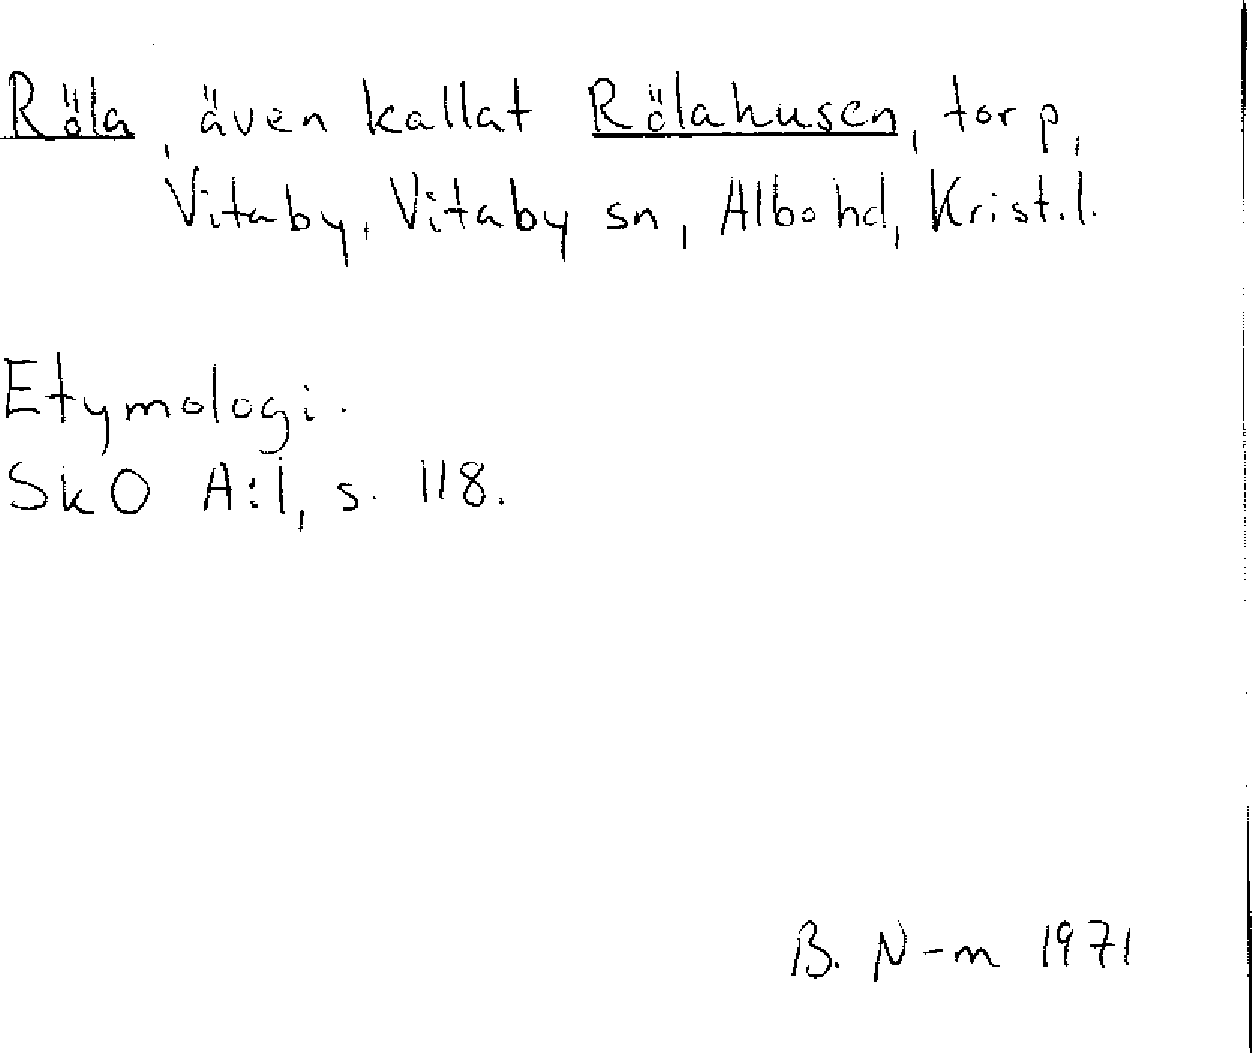 Röla, även kallat Rölahusen, torp,
Vitaby, Vitaby sn, Albo hd, Krist.l.
Etymologi.
SkO A:1, s. 118.
B. N-m 1971